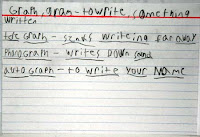 Graph, gram - to write, something
written
telegraph - sends writeing far away
phonograph - writes down sound
autograph - to write your name